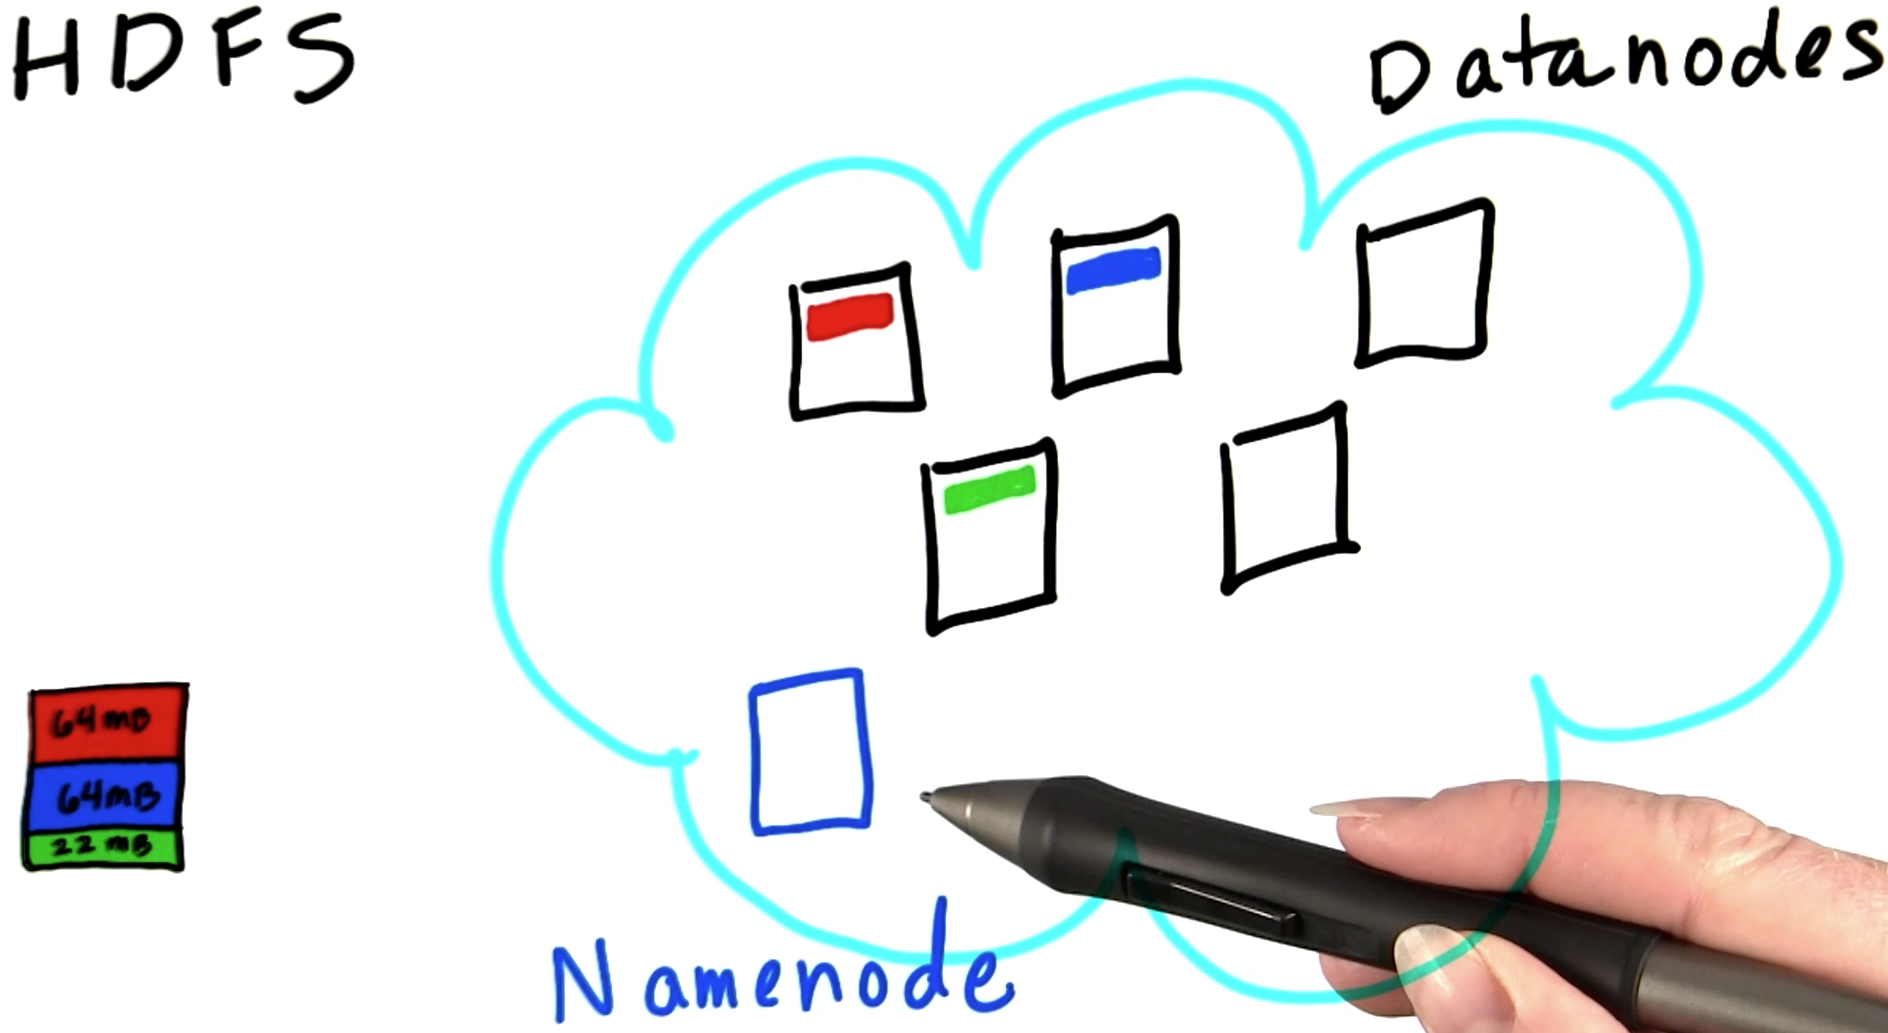 HDFS
Datanodes
64mB
64mB
22mB
Namenode